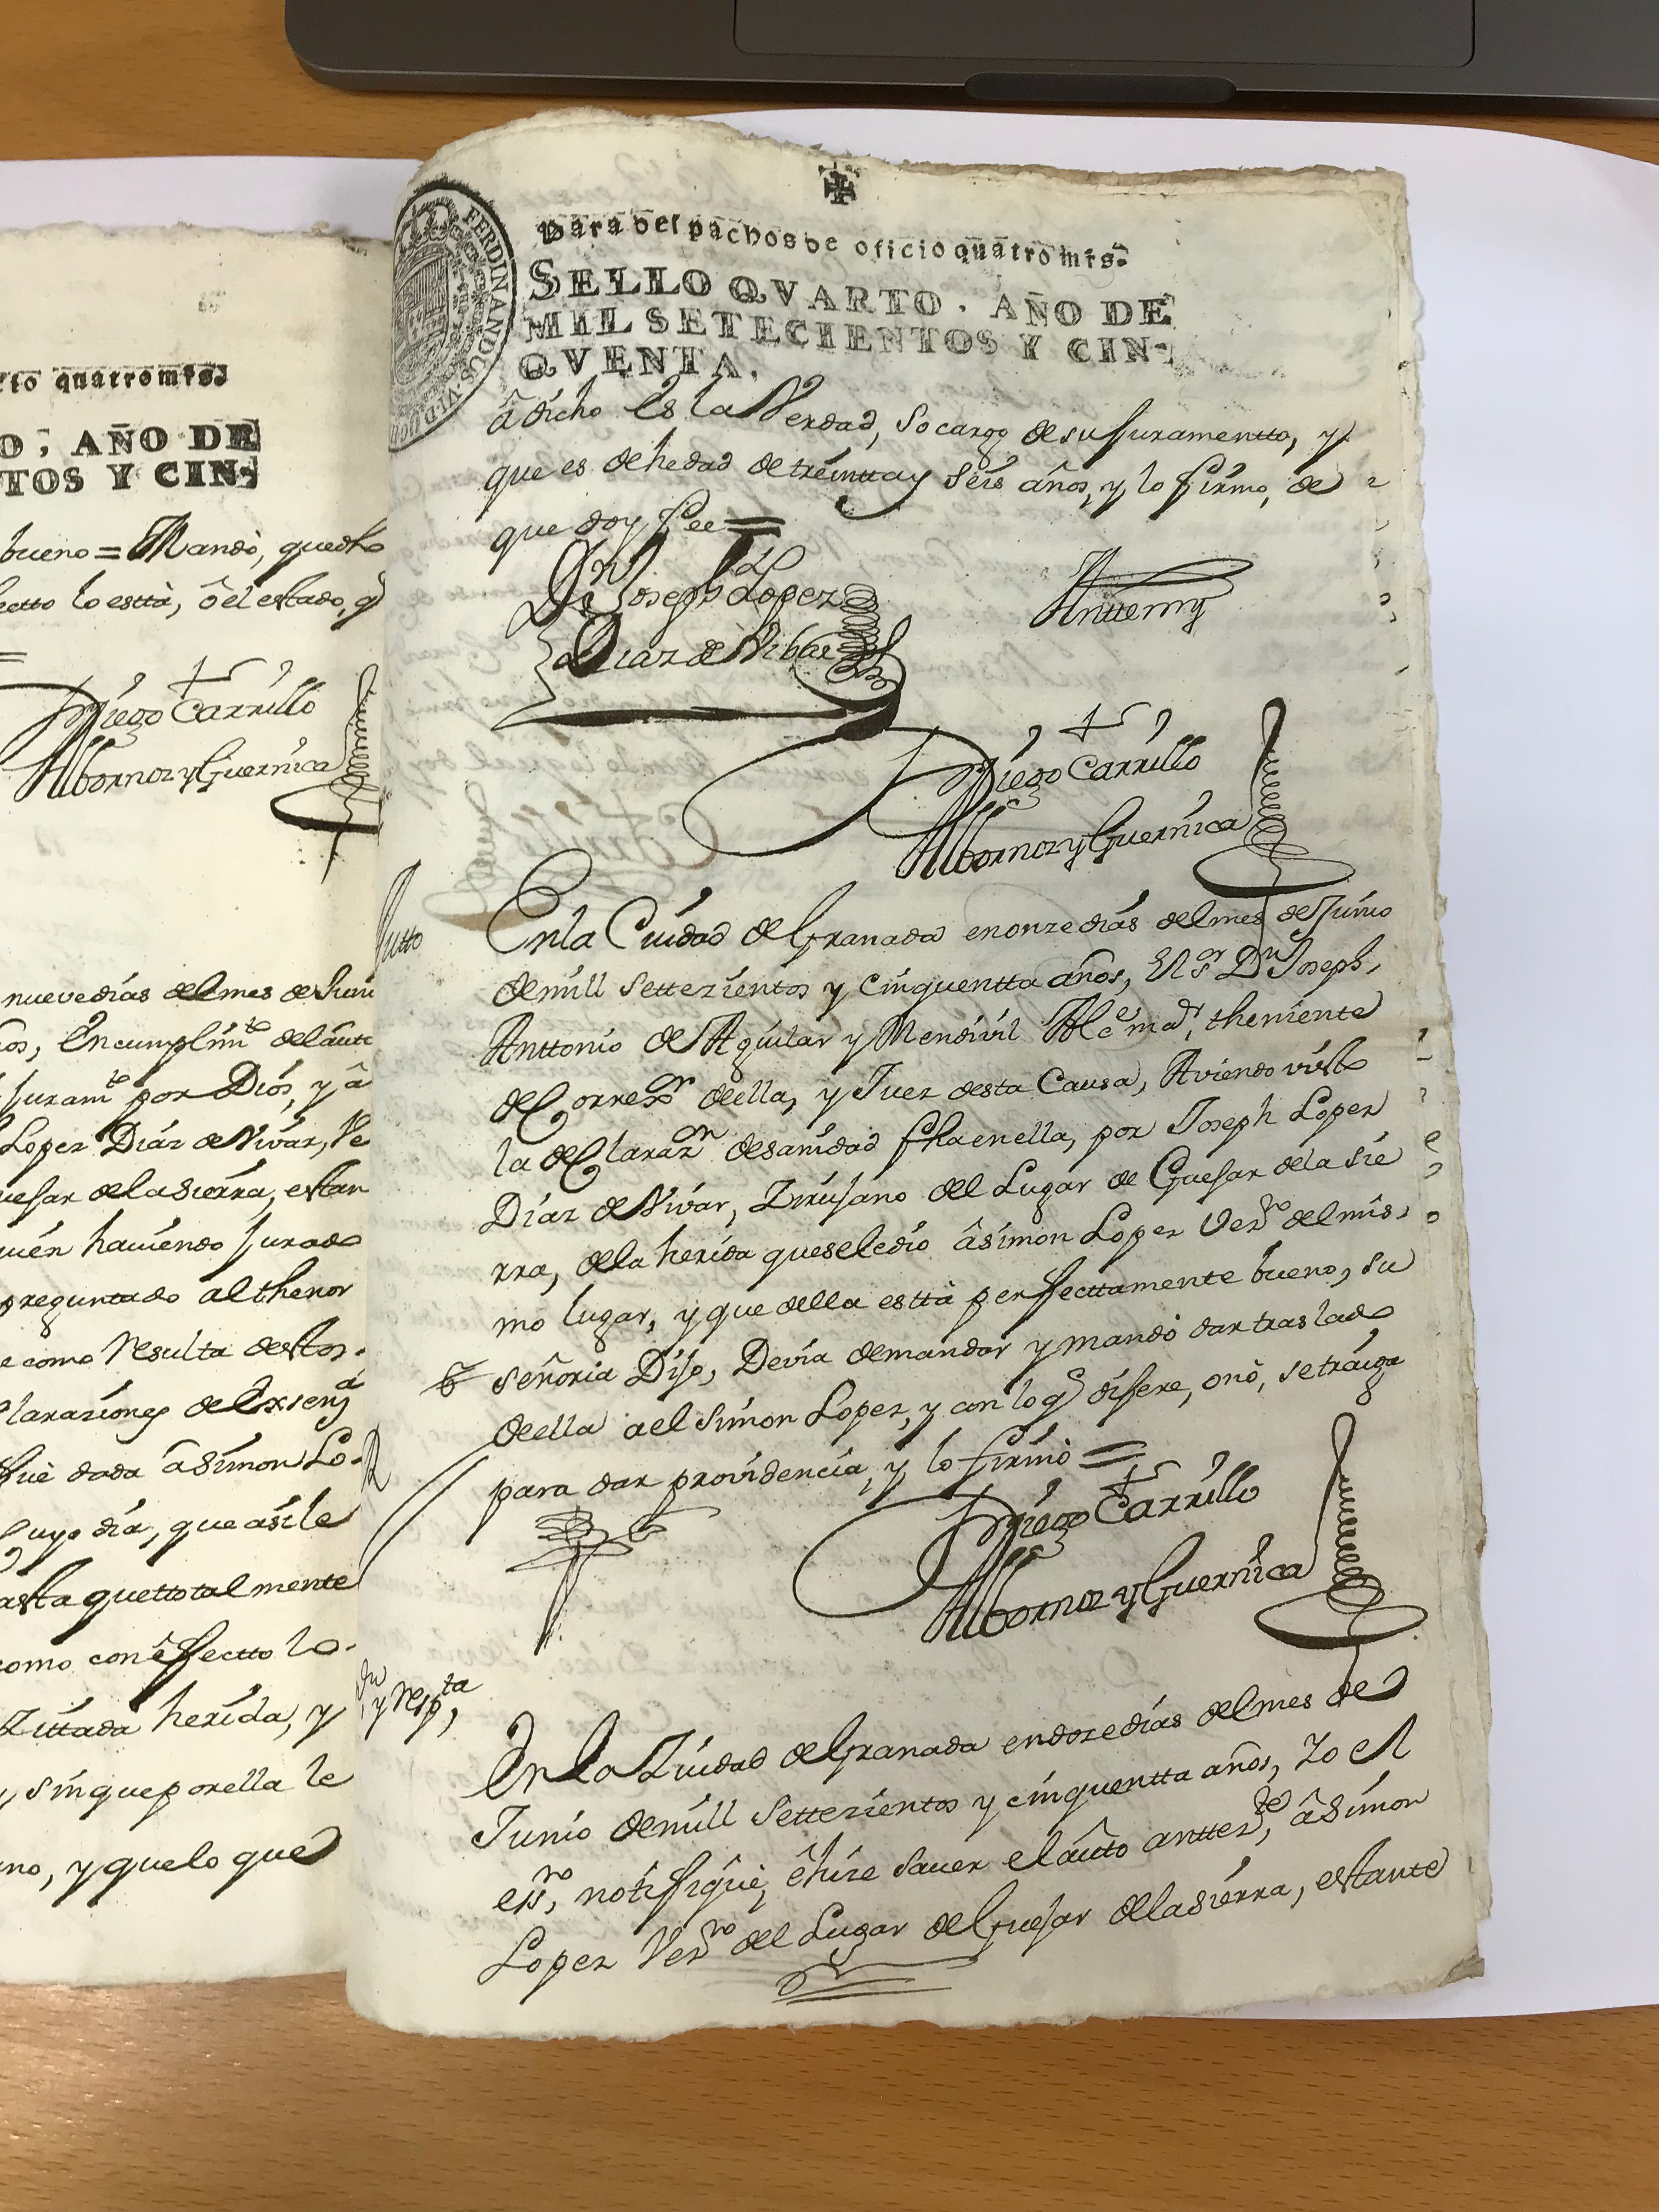 rio quatro mrs.
O, AÑO DE
TOS Y CIN-
bueno = Mandò, quedho
fectto lo esttà, ô el estado, q
Diego Carrillo
Albornoz y Guernica
nueve dias del mes de Juni
ños, En cumplimto del auto
Juramto por Dios, y â
Lopez Diaz de Vivar, Ve
uejar de la Sierra, estan
uien haviendo Jurado
preguntado al thenor
e como resulta destos
claraziones de Exsenzia
fuè dada â Simon Lo-
Cuyo dia, que asi le
asta que ttotalmente
como con êfectto lo
Zittada herida, y
, sin que por ella le
no, y que lo que
FERDINANDUS. VI. D. G.
Para despachos de oficio quatro mrs.
SELLO QVARTO. AÑO DE
MIL SETECIENTOS Y CIN-
QVENTA.
â dicho Es la Verdad, so cargo de su Juramentto, y
que es de hedad de treintta y seis años, y lo firmo, de
que doy fee =
Dn Joseph Lopez
Diaz de Vibar
Antte my
Diego Carrillo
Albornoz y Guernica
Autto
En la Ciudad de Granada en onze dias del mes de Junio
de mill settezientos y cinquentta años, El sr Dn Joseph
Anttonio de Aguilar y Mendivil Alce mar, theniente
de Correxor de ella, y Juez desta Causa, Aviendo visto
la declarazon de sanidad fha en ella, por Joseph Lopez
Diaz de Vivar, Zirujano del Lugar de Guejar de la Sie
rra, de la herida que se le dio â Simon Lopez Vezno del mis-
mo lugar, y que della està perfecttamente bueno, su
señoria Dijo, Devia de mandar y mandò dar traslado
de ella a el Simon Lopez, y con lo q dijere, o nò, se traiga
para dar providencia, y lo firmò =
Diego Carrillo
Albornoz y Guernica
y respta,
En la Ziudad de Granada en doze dias del mes de
Junio de mill settezientos y cinquentta años, Yo el
essno, notifiquè, ê hize saver el âuto antteze, â Simon
Lopez Vezno del Lugar de Guejar de la Sierra, estante